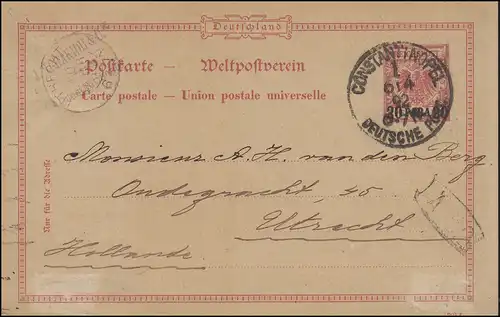 Deutschland
Postkarte – Weltpostverein
Carte postale – Union postale universelle
CONSTANTINOPEL
1
92
DEUTSCHE POST
20 PARA 20
Monsieur A. H. van den Berg.
Oudegracht 45
Utrecht
Hollande
Nur für die Adresse